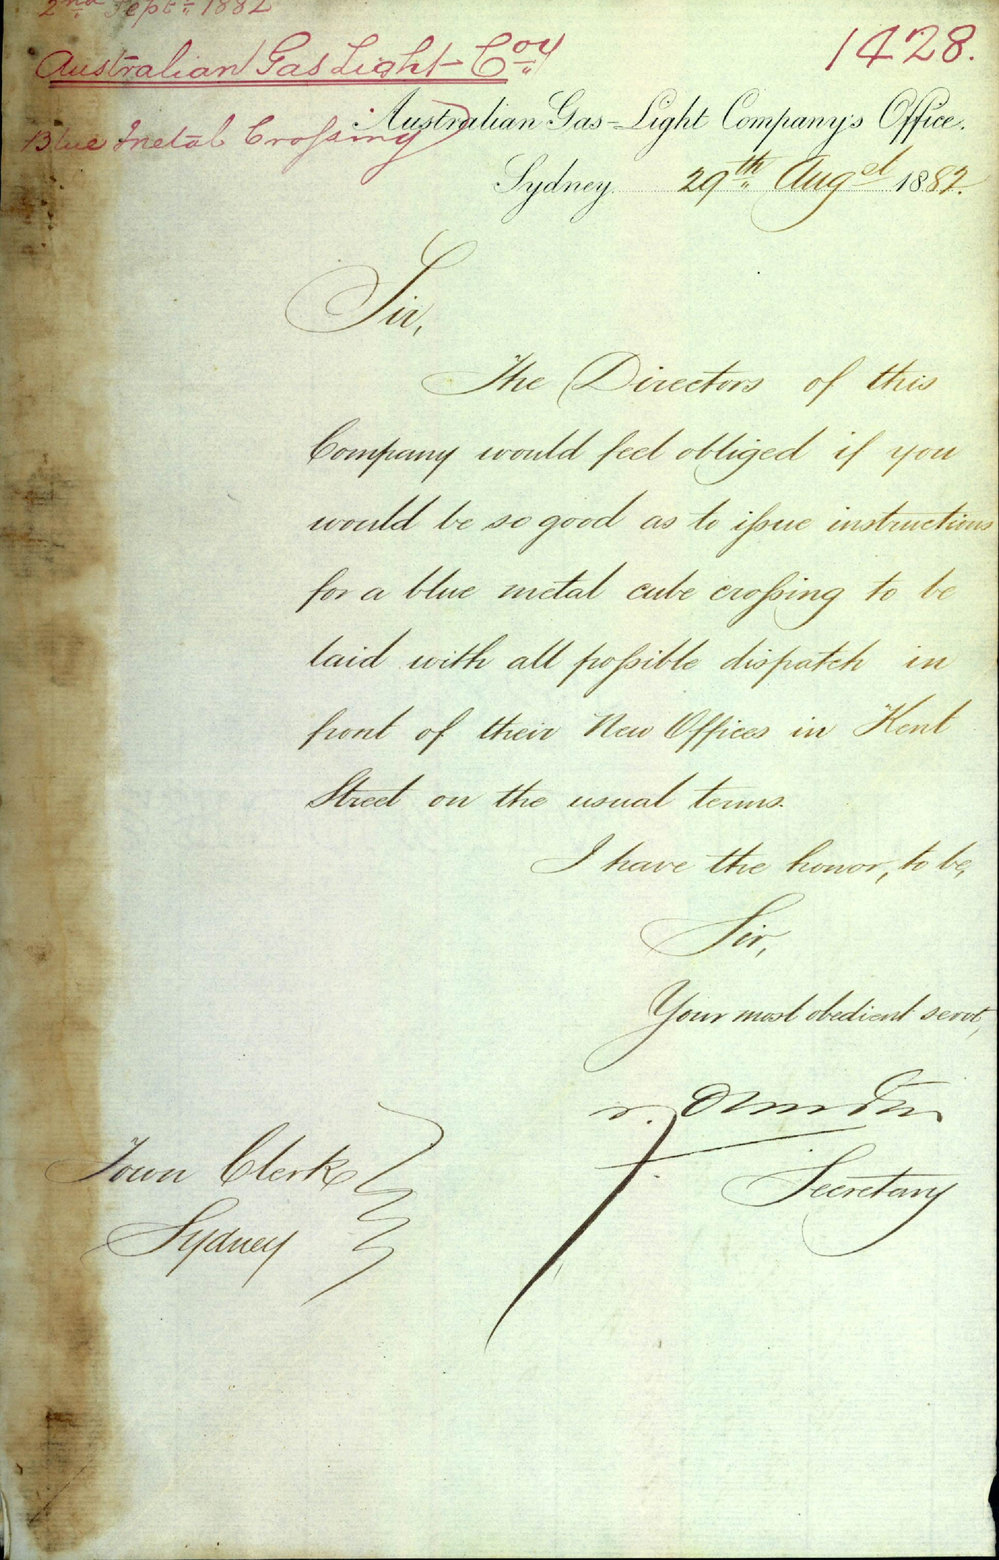 2nd Sept: 1882
Australian Gas Light Coy
1428.
Blue Metal Crossing
Australian Gas-Light Company's Office.
Sydney 29th Augst 1882.
Sir,
The Directors of this
Company would feel obliged if you
would be so good as to issue instructions
for a blue metal cube crossing to be
laid with all possible dispatch in
front of their New Offices in Kent
Street on the usual terms.
I have the honor, to be,
Sir,
Your most obedient servt,
Secretary
Town Clerk
Sydney